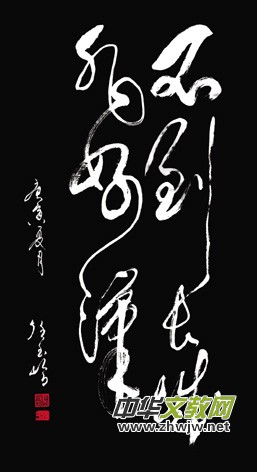 不到长城
非好漢
庚寅夏月
任玉岭
中华文教网
www.zhwjw.net